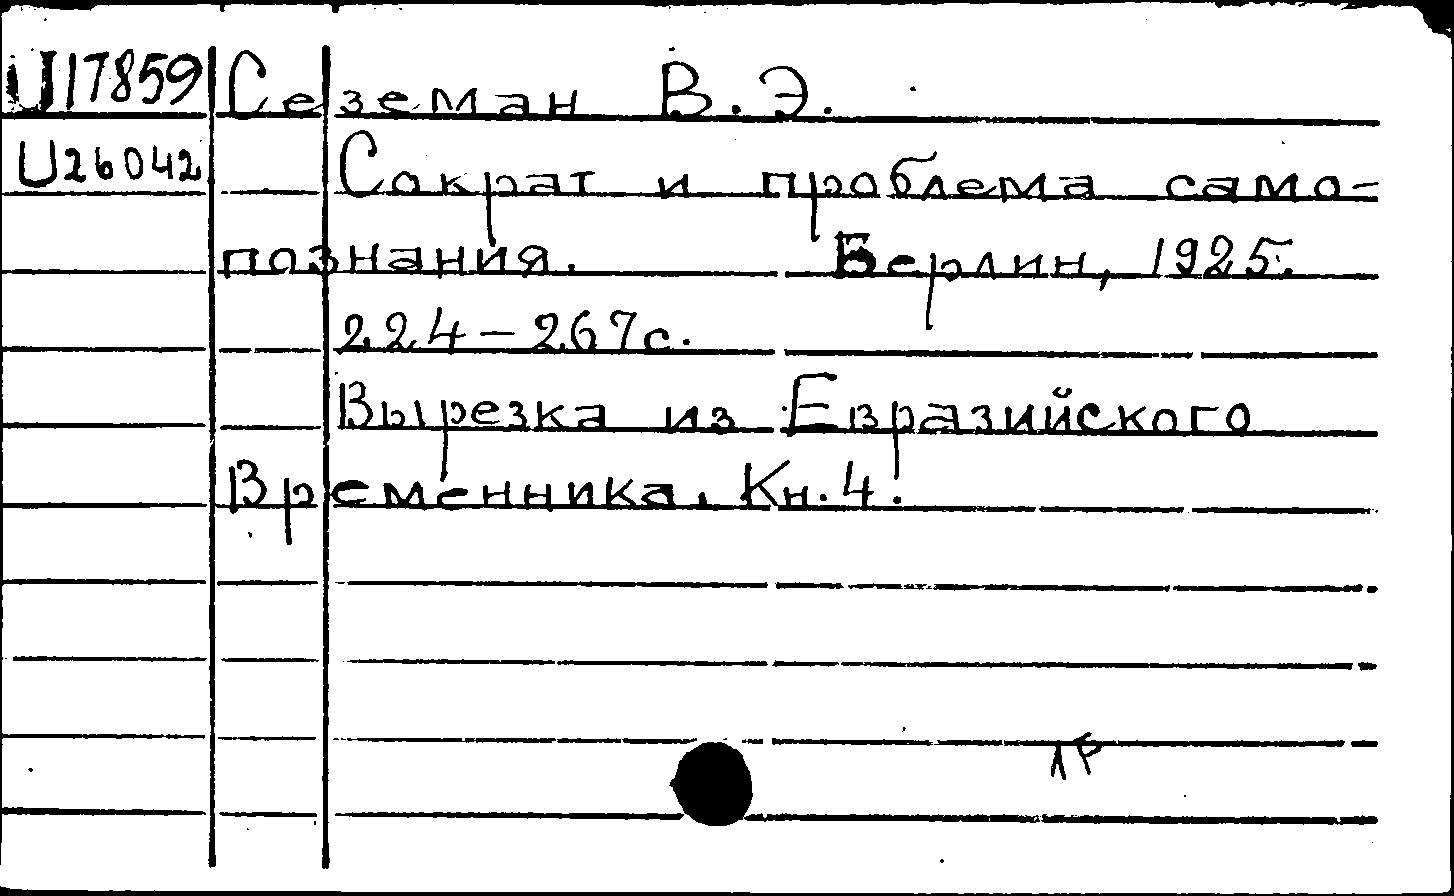 U17859 Сеземан В.Э.
U26042 Сократ и проблема само-
познания. Берлин, 1925.
224-267с.
Вырезка из Евразийского
Временника. Кн.4.